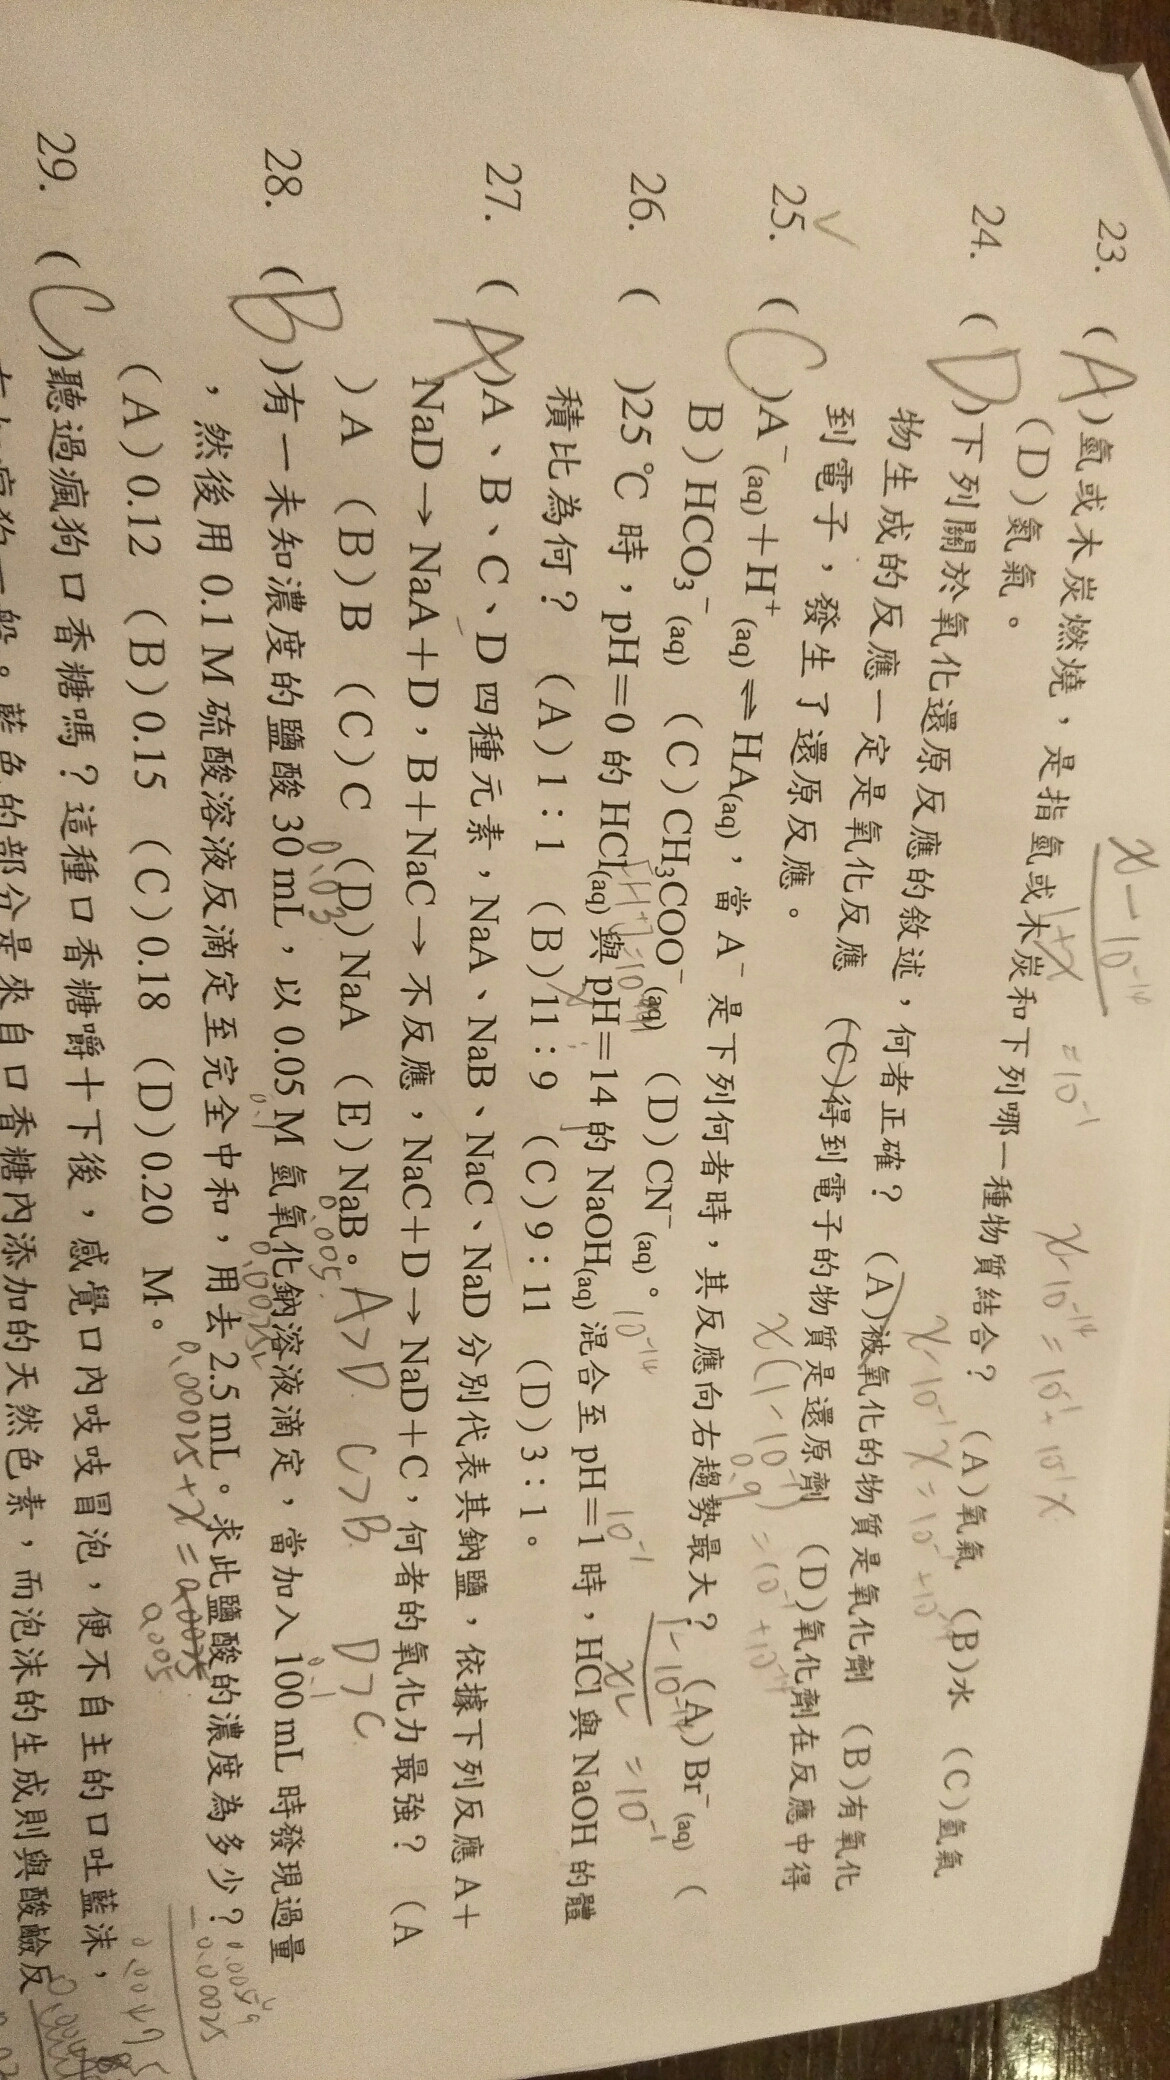 23. (A)氫或木炭燃燒,是指氫或木炭和下列哪一種物質結合? (A)氧氣 (B)水 (C)氫氧
(D)氮氣。
24. (D)下列關於氧化還原反應的敘述,何者正確? (A)被氧化的物質是氧化劑 (B)有氧化
物生成的反應一定是氧化反應 (C)得到電子的物質是還原劑 (D)氧化劑在反應中得
到電子,發生了還原反應。
25. (C)A⁻(aq)+H⁺(aq)⇌HA(aq),當 A⁻ 是下列何者時,其反應向右趨勢最大? (A)Br⁻(aq) (
B)HCO₃⁻(aq) (C)CH₃COO⁻(aq) (D)CN⁻(aq)。
26. ( )25℃ 時,pH=0 的 HCl(aq)與 pH=14 的 NaOH(aq)混合至 pH=1 時,HCl 與 NaOH 的體
積比為何? (A)1:1 (B)11:9 (C)9:11 (D)3:1。
27. (A)A、B、C、D 四種元素,NaA、NaB、NaC、NaD 分別代表其鈉鹽,依據下列反應 A+
NaD→NaA+D,B+NaC→不反應,NaC+D→NaD+C,何者的氧化力最強? (A
)A (B)B (C)C (D)NaA (E)NaB。 A>D C>B D>C
28. (B)有一未知濃度的鹽酸 30 mL,以 0.05 M 氫氧化鈉溶液滴定,當加入 100 mL 時發現過量
,然後用 0.1 M 硫酸溶液反滴定至完全中和,用去 2.5 mL。求此鹽酸的濃度為多少?
(A)0.12 (B)0.15 (C)0.18 (D)0.20 M。
29. (C)聽過瘋狗口香糖嗎?這種口香糖嚼十下後,感覺口內吱吱冒泡,便不自主的口吐藍沫,
有如瘋狗一般。藍色的部分是來自口香糖內添加的天然色素,而泡沫的生成則與酸鹼反